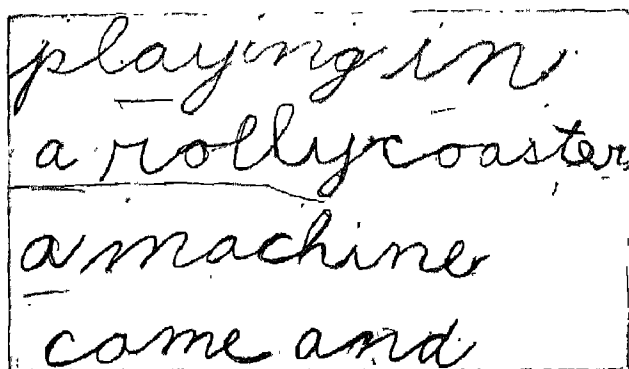 playing in
a rollycoaster
a machine
come and